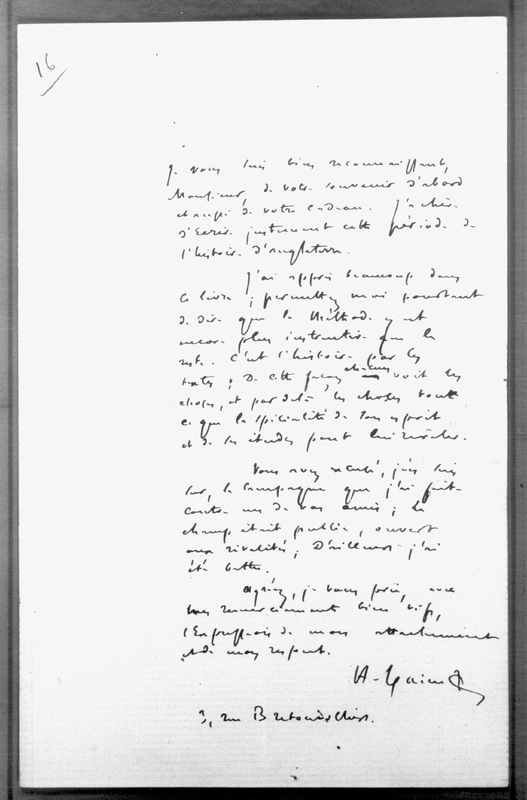 16
Je vous suis bien reconnaissant,
Monsieur, de votre souvenir d'abord
et aussi de votre cadeau. J'achève
d'écrire justement cette période de
l'histoire d'Angleterre.
J'ai appris beaucoup dans
ce livre ; permettez moi pourtant
de dire que la Méthode y est
encore plus instructive que le
reste. C'est l'histoire par les
textes ; De cette façon chacun voit les
choses, et par delà les choses tout
ce que la spécialité de son esprit
et de ses études peut lui révéler.
Vous avez excusé, j'en suis
sur, la campagne que j'ai faite
contre un de vos amis ; le
champ était public, ouvert
aux rivalités ; D'ailleurs j'ai
été battu.
Agréez, je vous prie, avec
mes remerciements bien vifs,
l'Expression de mon attachement
et de mon respect.
H. Taine
3, rue Bretonvilliers.